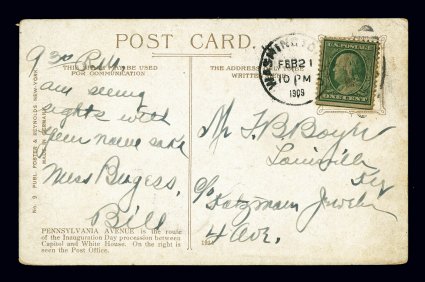 POST CARD.
THIS SPACE MAY BE USED
FOR COMMUNICATION
THE ADDRESS
WRITTEN
WASHINGTO
FEB 21
10 PM
1909
U.S. POSTAGE
ONE CENT
9 30 P.M.
am seeing
sights with
name sake
Miss Burgess.
Bill
Mr F. B. Boyle
Louisville
Ky
c/o Katzman Jeweler
4 Ave.
PENNSYLVANIA AVENUE is the route
of the Inauguration Day procession between
Capitol and White House. On the right is
seen the Post Office.
No. 9 PUBL. FOSTER & REYNOLDS NEW-YORK
MADE IN GERMANY